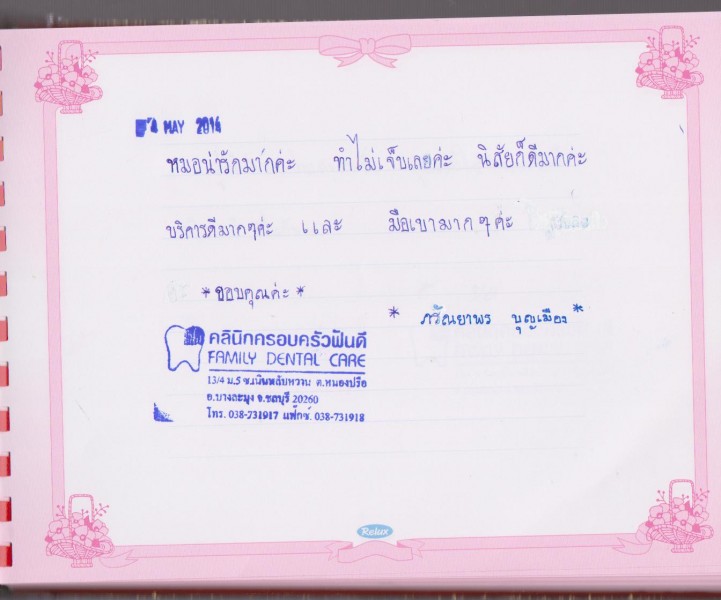 4 MAY 2014
หมอน่ารักมากค่ะ ทำไม่เจ็บเลยค่ะ นิสัยก็ดีมากค่ะ
บริการดีมากๆค่ะ และ มือเบามากๆค่ะ
*ขอบคุณค่ะ*
* ภรัณยาพร บุญเมือง *
คลินิกครอบครัวฟันดี
FAMILY DENTAL CARE
13/4 ม.5 ซ.เนินพลับหวาน ต.หนองปรือ
อ.บางละมุง จ.ชลบุรี 20260
โทร. 038-731917 แฟ็กซ์. 038-731918
Relux